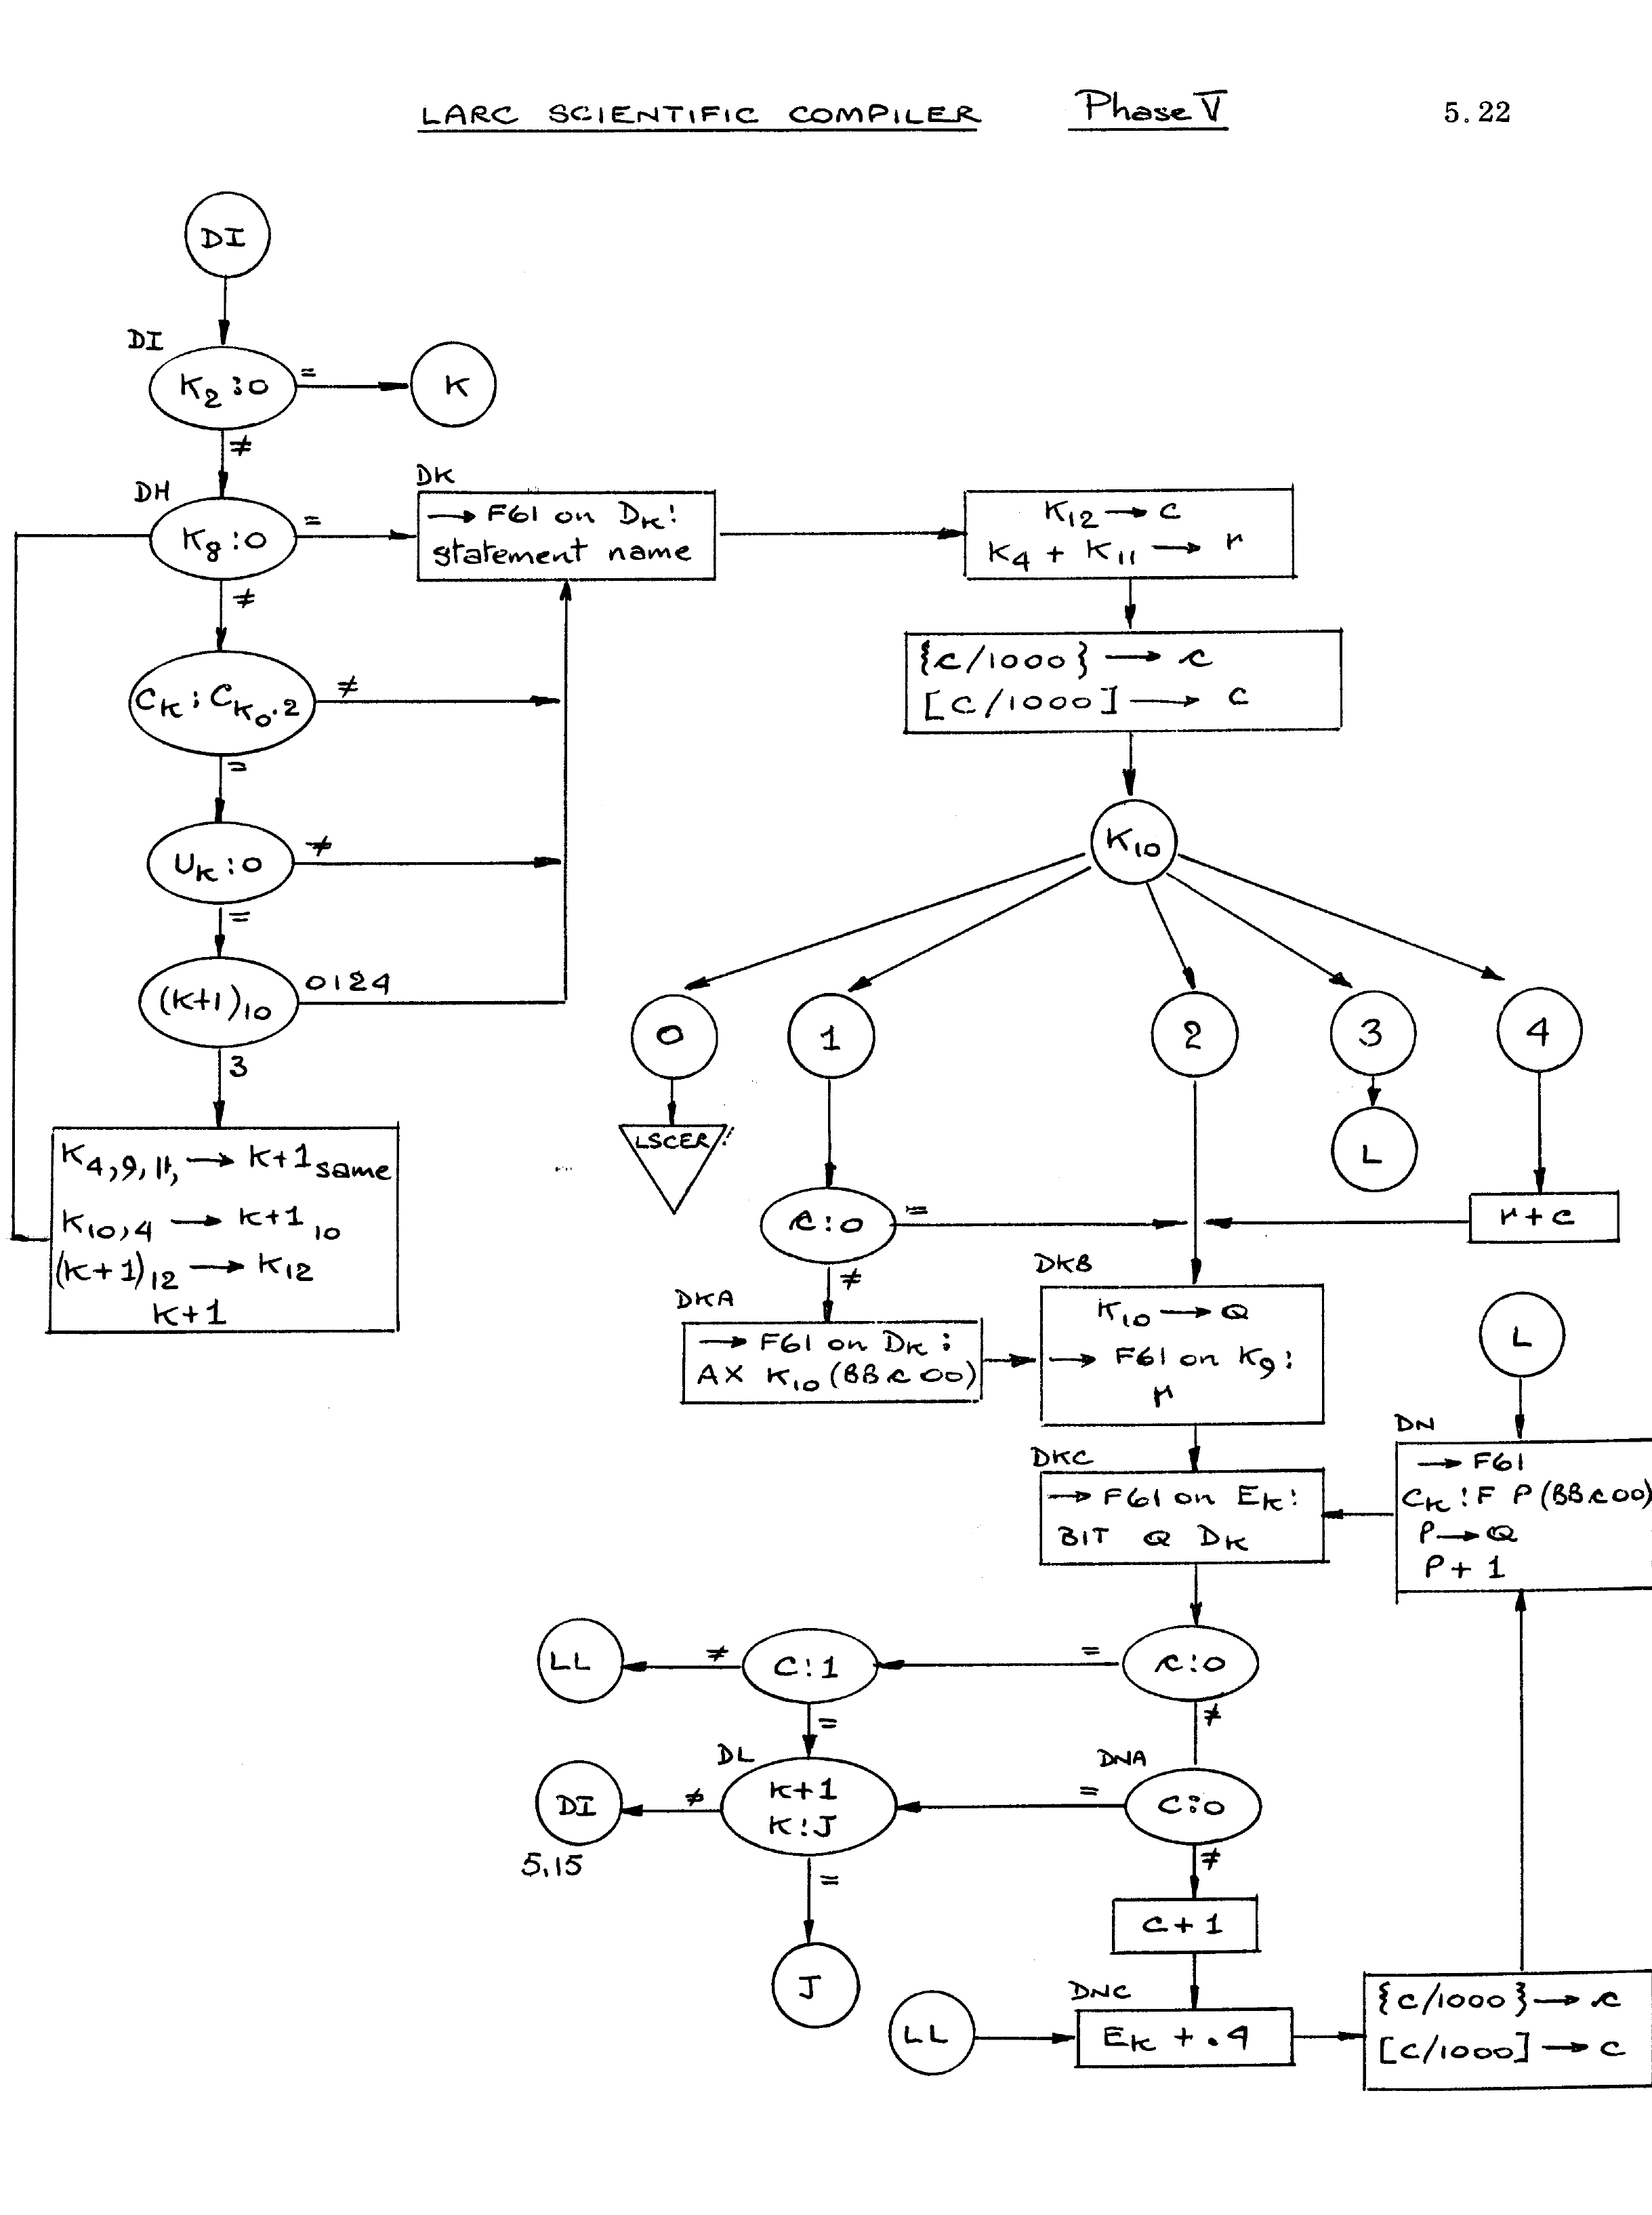 LARC SCIENTIFIC COMPILER Phase V 5.22
DI
DI
K₂:0
=
K
≠
DH
K₈:0
=
≠
DK
→ F61 on Dₖ:
statement name
K₁₂ → c
K₄ + K₁₁ → r
{c/1000} → c
[c/1000] → c
Cₖ : Cₖ₀.₂
≠
=
Uₖ:0
≠
=
(K+1)₁₀
0124
3
K₄,₉,₁₁, → K+1 same
K₁₀,₄ → K+1 ₁₀
(K+1)₁₂ → K₁₂
K+1
K₁₀
0
1
2
3
4
LSCER
L
c:0
=
≠
r+c
DKA
→ F61 on Dₖ:
AX K₁₀(BBc00)
DKB
K₁₀ → Q
→ F61 on K₉:
r
L
DN
→ F61
Cₖ:F P(BBc00)
P → Q
P+1
DKC
→ F61 on Eₖ:
BIT Q Dₖ
LL
≠
C:1
=
c:0
=
≠
DI
5.15
≠
DL
K+1
K:J
=
DNA
C:0
=
≠
J
C+1
LL
DNC
Eₖ + .4
{c/1000} → c
[c/1000] → c